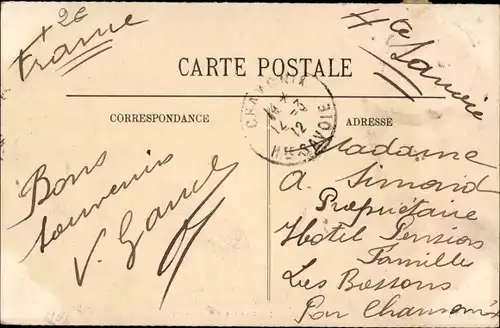 + 2e
France
Hte Savoie
CARTE POSTALE
CHAMONIX
12 -3
12
Hte SAVOIE
CORRESPONDANCE
ADRESSE
Bons
souvenirs
V.
Madame
A. Simond
Propriétaire
Hotel Pension
Famille
Les Bossons
Par Chamonix